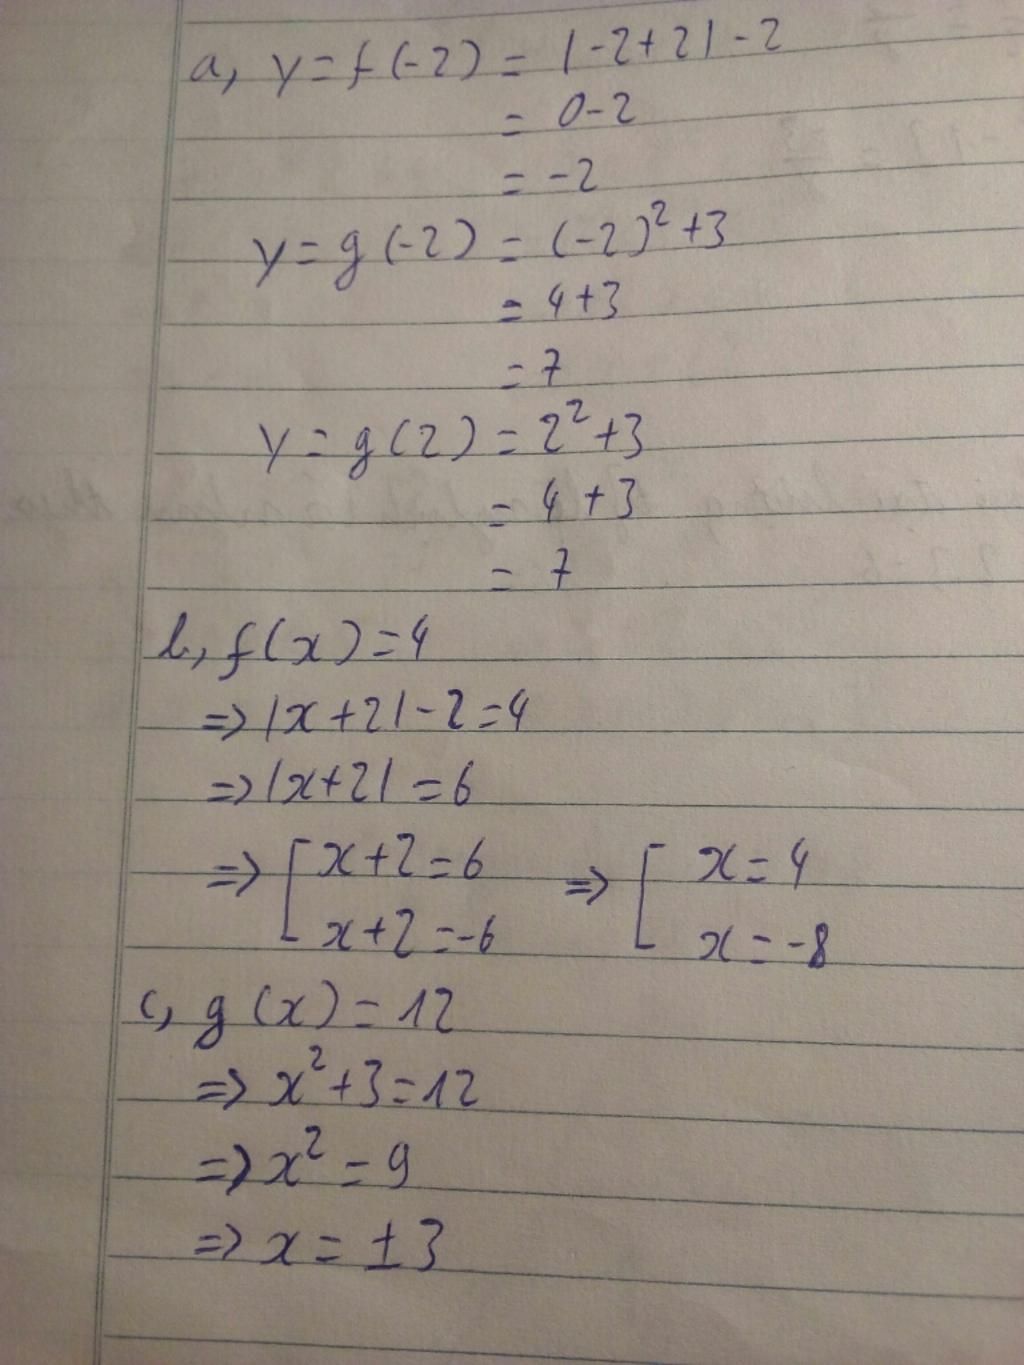 a, y = f(-2) = |-2+2| - 2
= 0-2
= -2
y = g(-2) = (-2)² + 3
= 4+3
= 7
y = g(2) = 2² + 3
= 4 + 3
= 7
b, f(x) = 4
=> |x+2| - 2 = 4
=> |x+2| = 6
=> [ x+2 = 6 => [ x = 4
x+2 = -6 x = -8
c, g(x) = 12
=> x² + 3 = 12
=> x² = 9
=> x = ±3